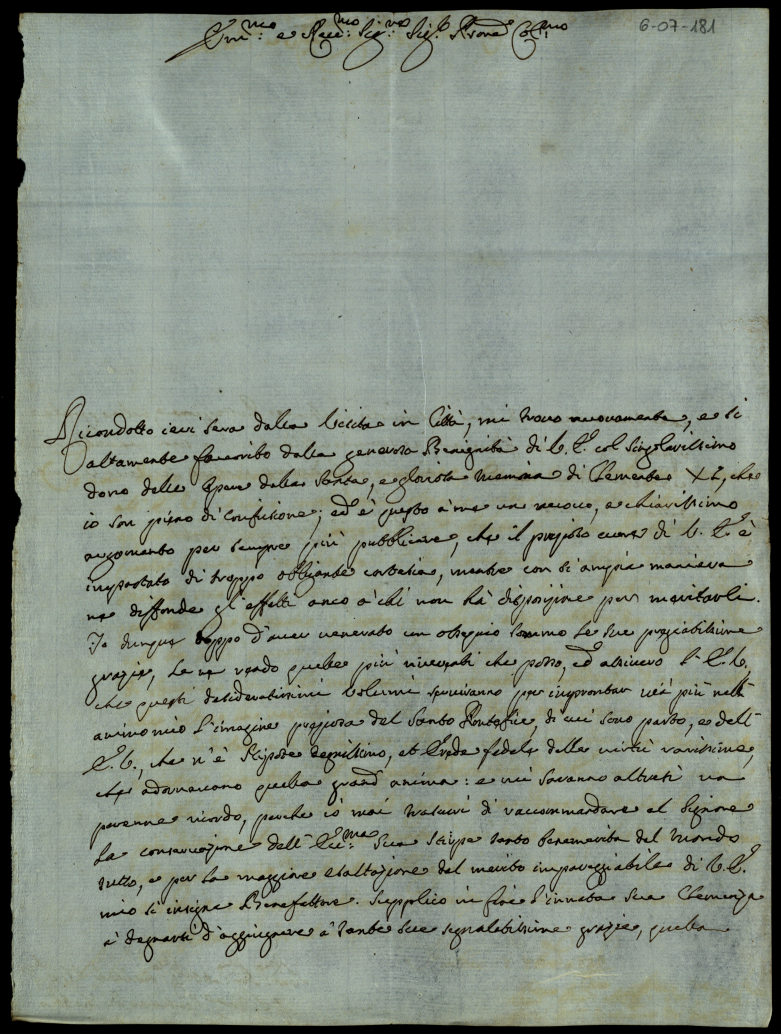 Em.mo e Rev.mo Sig.r Sig.r Prone Col.mo
6-07-181
Ricondotto ieri sera dalla Visita in Città, mi trovo nuovamente, e sì
altamente favorito dalla generosa Benignità di V. E. col singolarissimo
dono delle Opere della Santa, e gloriosa memoria di Clemente XI, che
io son pieno di confusione; ed è questo à me un nuovo, e chiarissimo
argomento per sempre più pubblicare, che il prezioso cuore di V. E. è
impastato di troppo obligante cortesia, mentre con sì ampia maniera
ne diffonde gl'effetti anco à chi non hà disposizione per meritarli.
Io dunque doppo d'aver venerato con ossequio sommo le sue pregiabilissime
grazie, le ne rendo quelle più riverenti che posso, ed assicuro l'E. V.
che questi desideratissimi Volumi serviranno per improntar vie più nell'
animo mio l'imagine preziosa del Santo Pontefice, di cui sono parto, e dell'
E. V., che n'è Nipote degnissimo, et Erede fedele delle virtù rarissime,
che adornavano quella grand'anima: e mi saranno altresì un
perenne ricordo, perche io mai trascuri di raccommandare al Signore
la conservazione dell'Ecc.ma Sua Stirpe tanto benemerita del Mondo
tutto, e per la maggiore esaltazione del merito impareggiabile di V. E.
mio sì insigne Benefattore. Supplico in fine l'innata Sua Clemenza
à degnarsi d'aggiugnere à tante sue segnalatissime grazie, quella